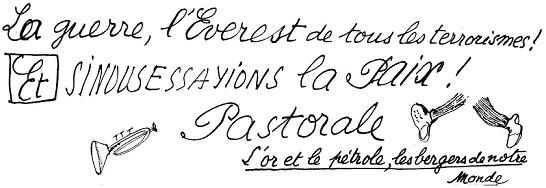 La guerre, l'Everest de tous les terrorismes!
Et SINOUSESSAYIONS la Paix!
Pastorale
L'or et le pétrole, les bergers de notre
Monde